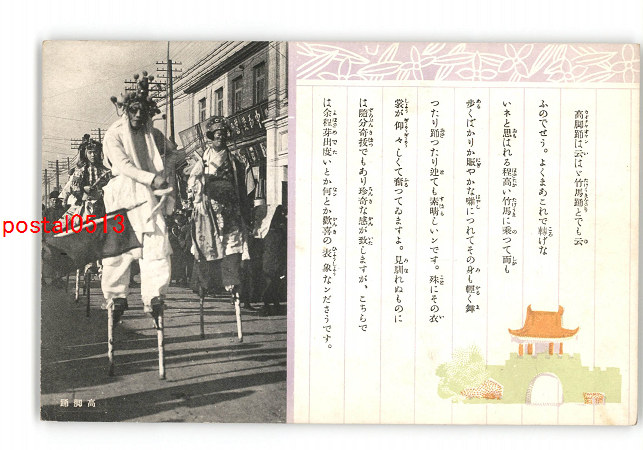 高脚踊は云はゞ竹馬踊とでも云
ふのでせう。よくまあこれで轉げな
いネと思はれる程高い竹馬に乘つて而も
歩くばかりか賑やかな囃につれてその身も輕く舞
つたり踊つたり迚ても素晴しいンです。殊にその衣
裳が仰々しくて奮つてゐますよ。見馴れぬものに
は隨分奇拔でもあり珍奇な感が致しますが、こちらで
は余程芽出度いとか何とか歡喜の表象なンださうです。
高脚踊
postal0513